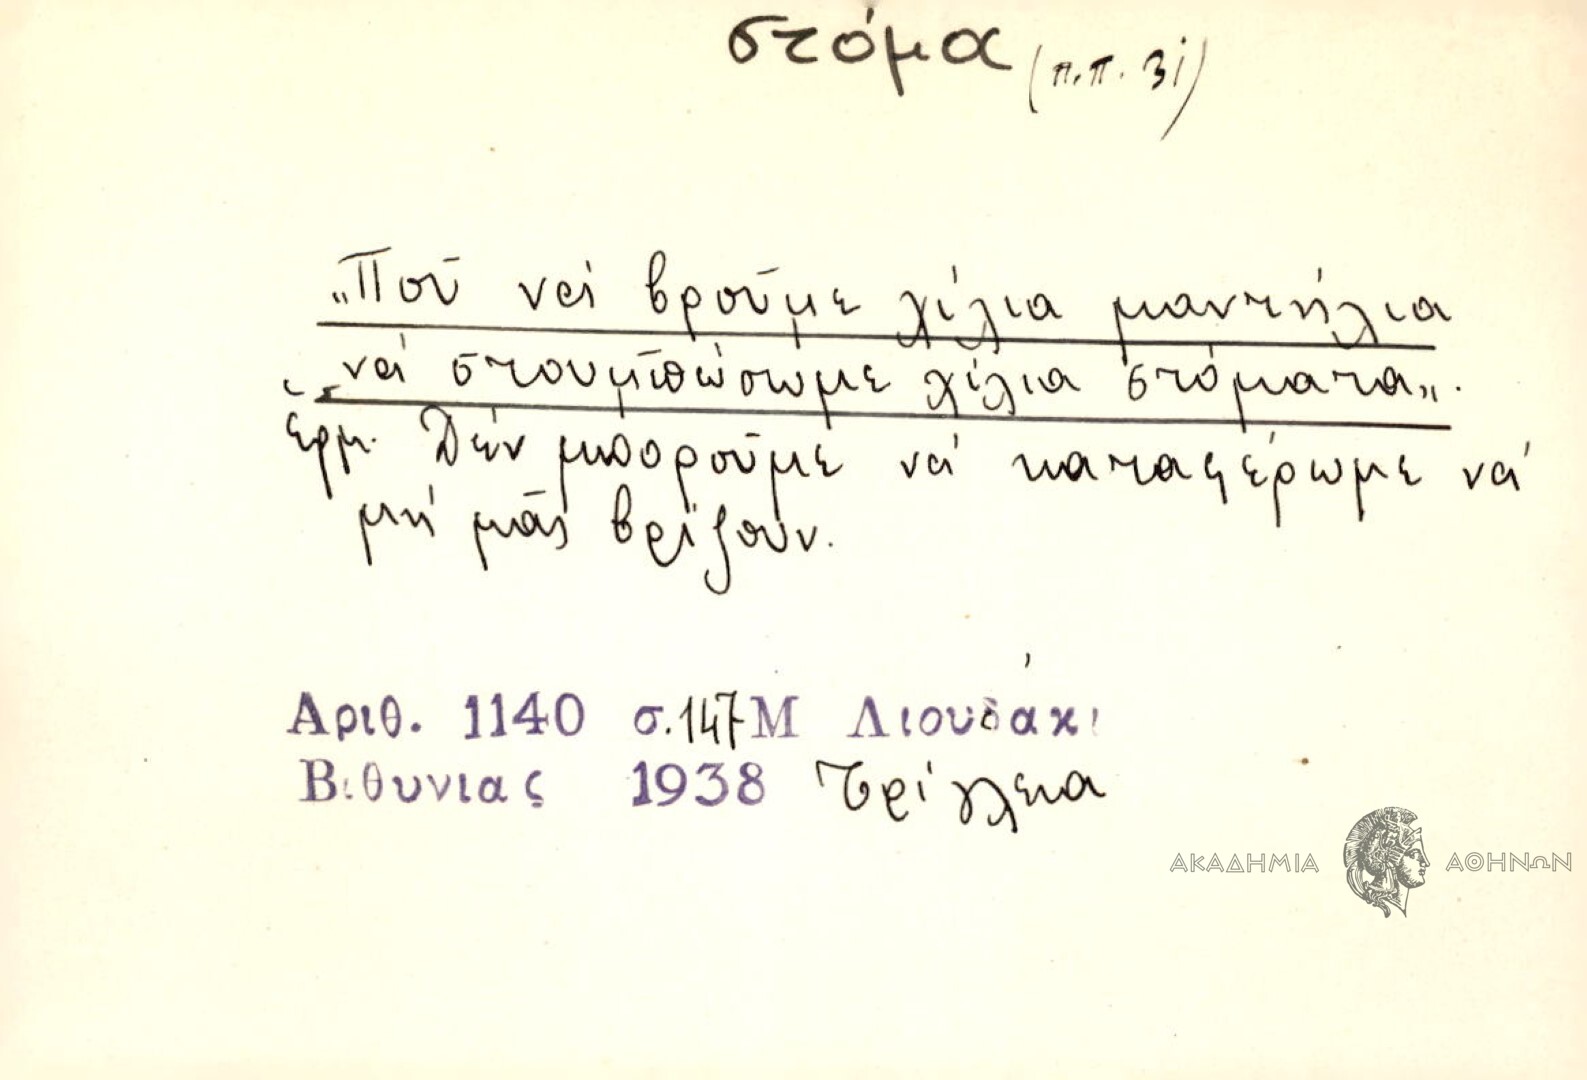 στόμα (π.π. 3i)
„Ποῦ νά βροῦμε χίλια μαντήλια
νά στουμπώσωμε χίλια στόματα„.
Ἑρμ. Δέν μποροῦμε νά καταφέρωμε νά
μή μᾶς βρίζουν.
Αριθ. 1140 σ. 147 Μ Λιουδάκι
Βιθυνιας 1938 Τρίγλεια
ΑΚΑΔΗΜΙΑ ΑΘΗΝΩΝ